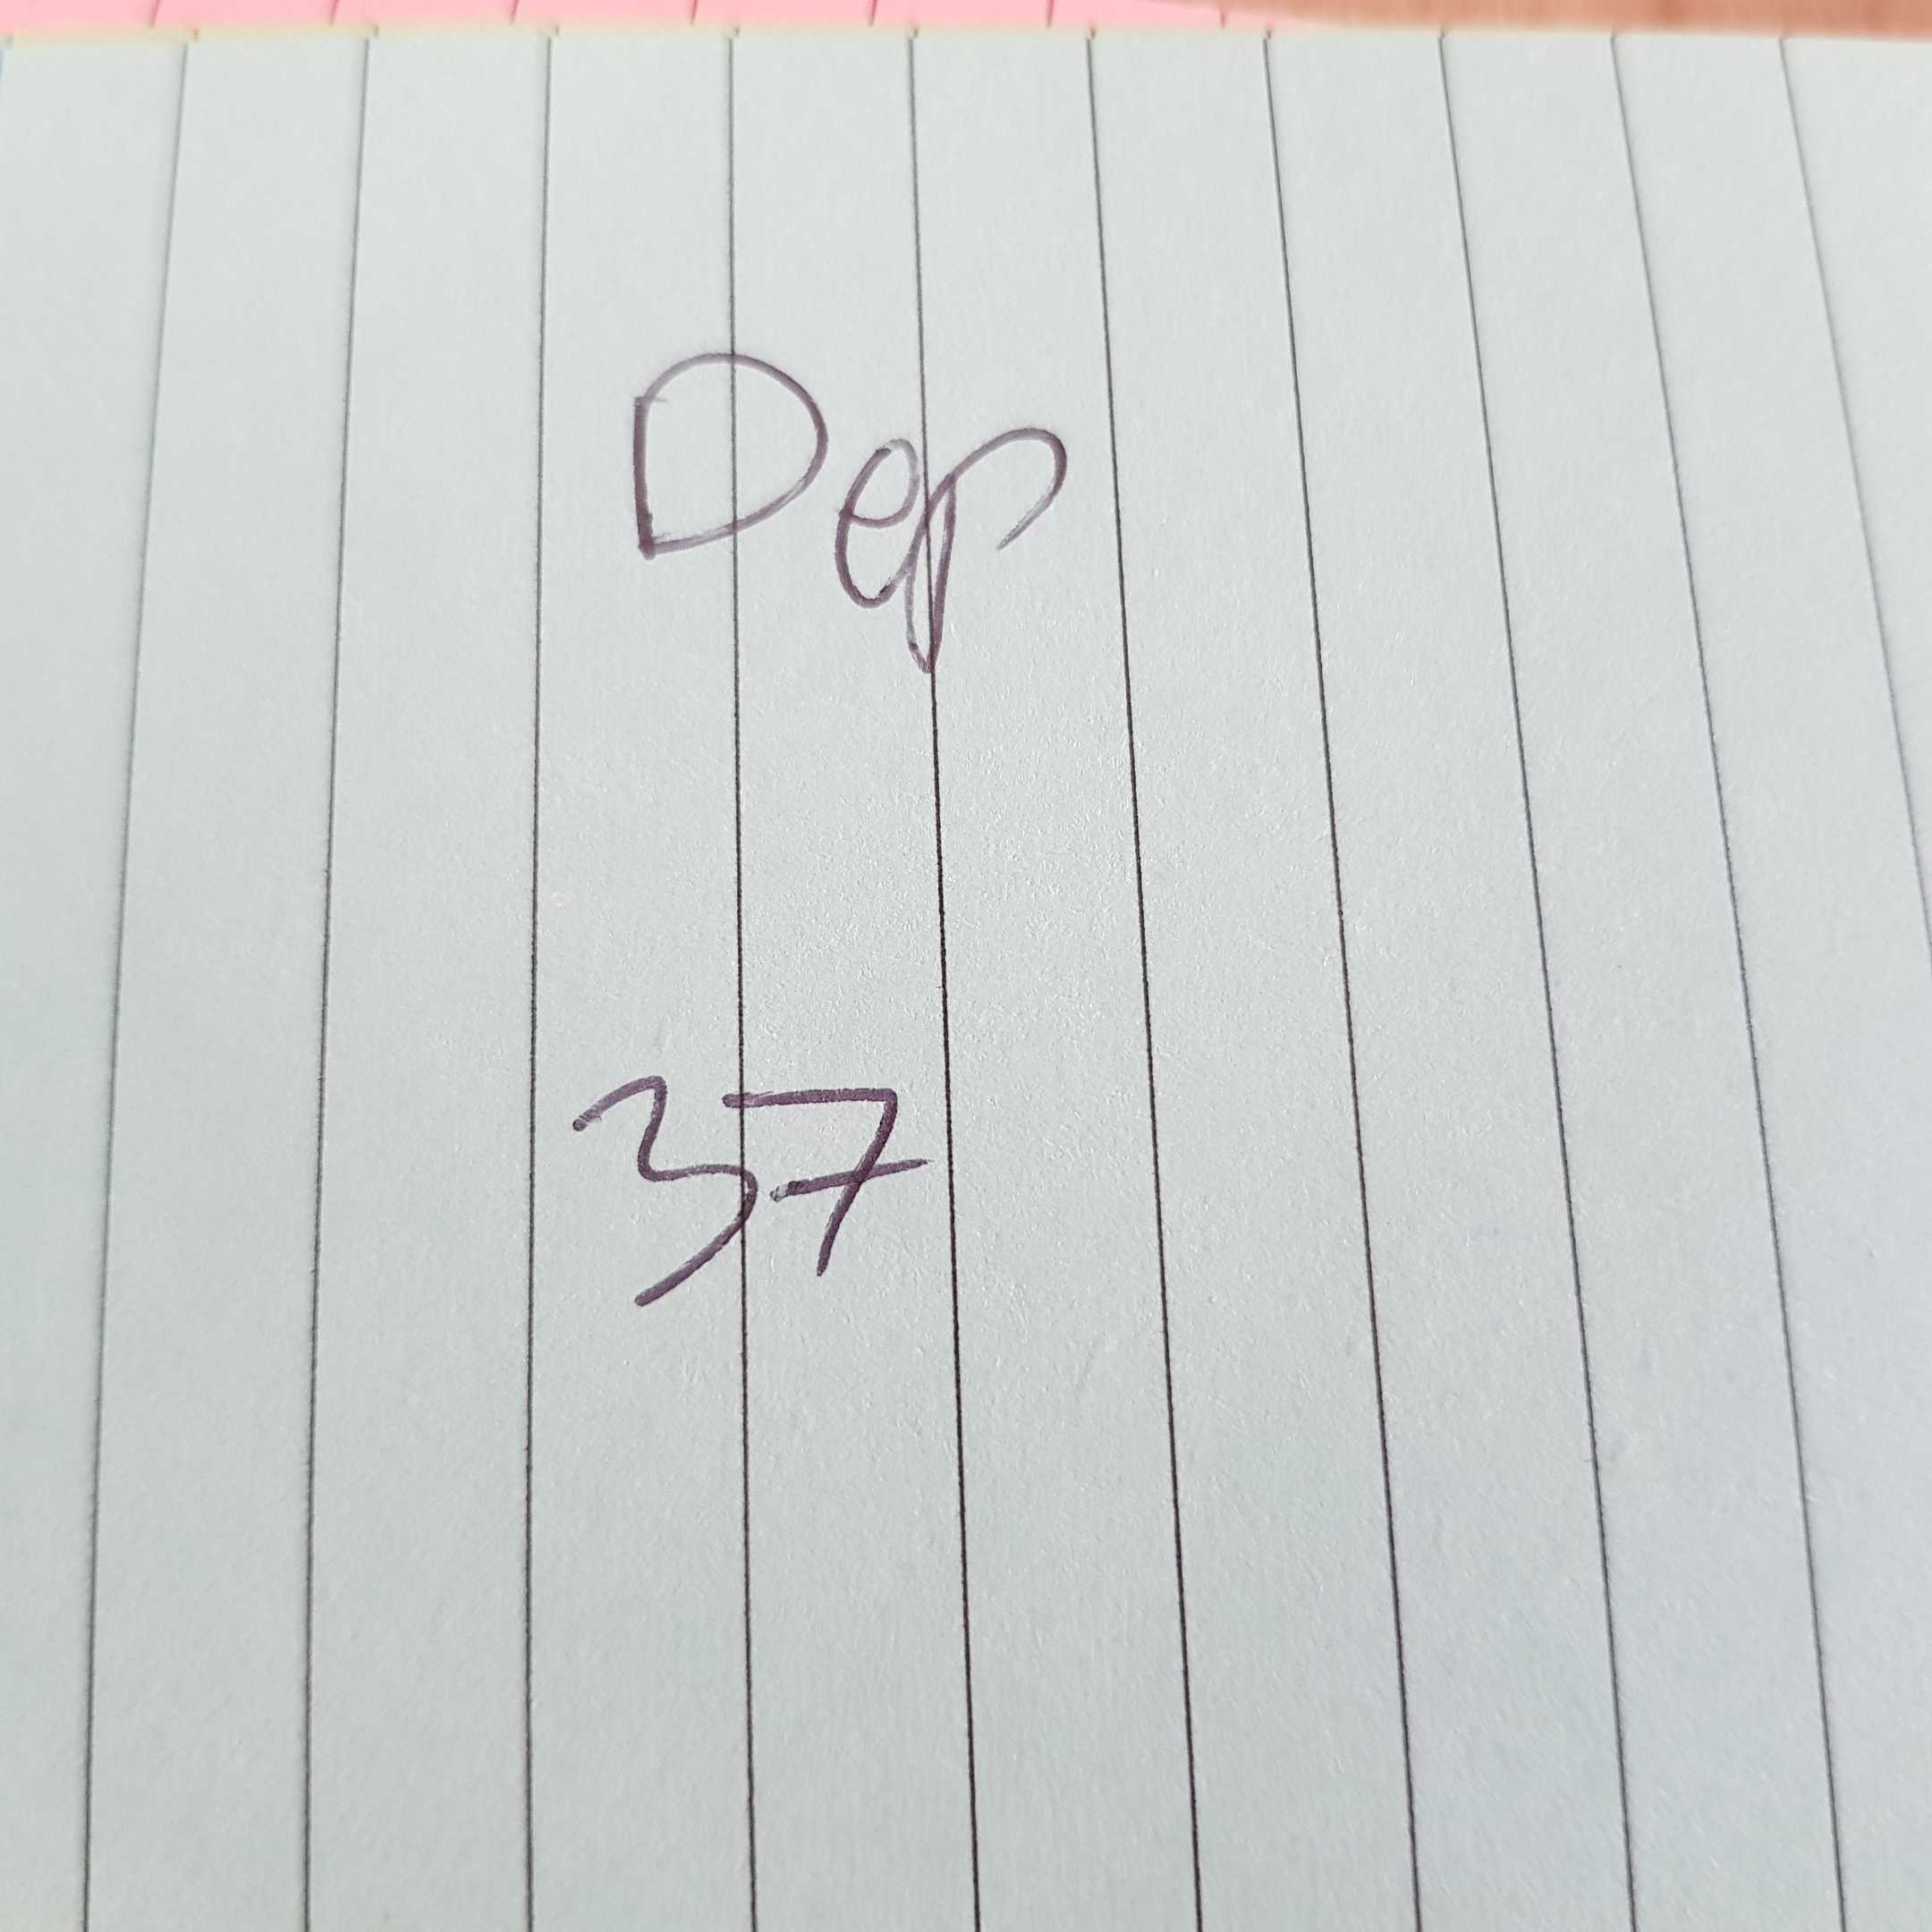 Dep
37